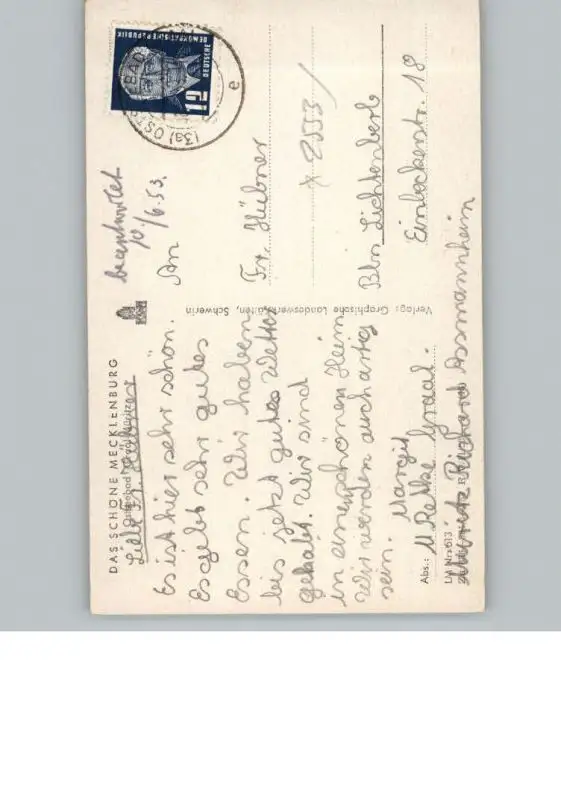 DAS SCHÖNE MECKLENBURG
Ostseebad
Liebe Fr. Hübner
Es ist hier sehr schön.
Es gibt sehr gutes
Essen. Wir haben
bis jetzt gutes Wetter
gehabt. Wir sind
in einem schönen Heim
Wir werden auch artig
sein.
Margit
Abs.:
Graal.
LM Nr. 613
Richard Assmannheim
Verlag: Graphische Landeswerkstätten, Schwerin
beantwortet
10./6.53.
An
Fr. Hübner
x 2553/
Bln Lichtenberb
Einbeckerstr. 18
DEUTSCHE
DEMOKRATISCHE REPUBLIK
12
(3a) OST BAD
e